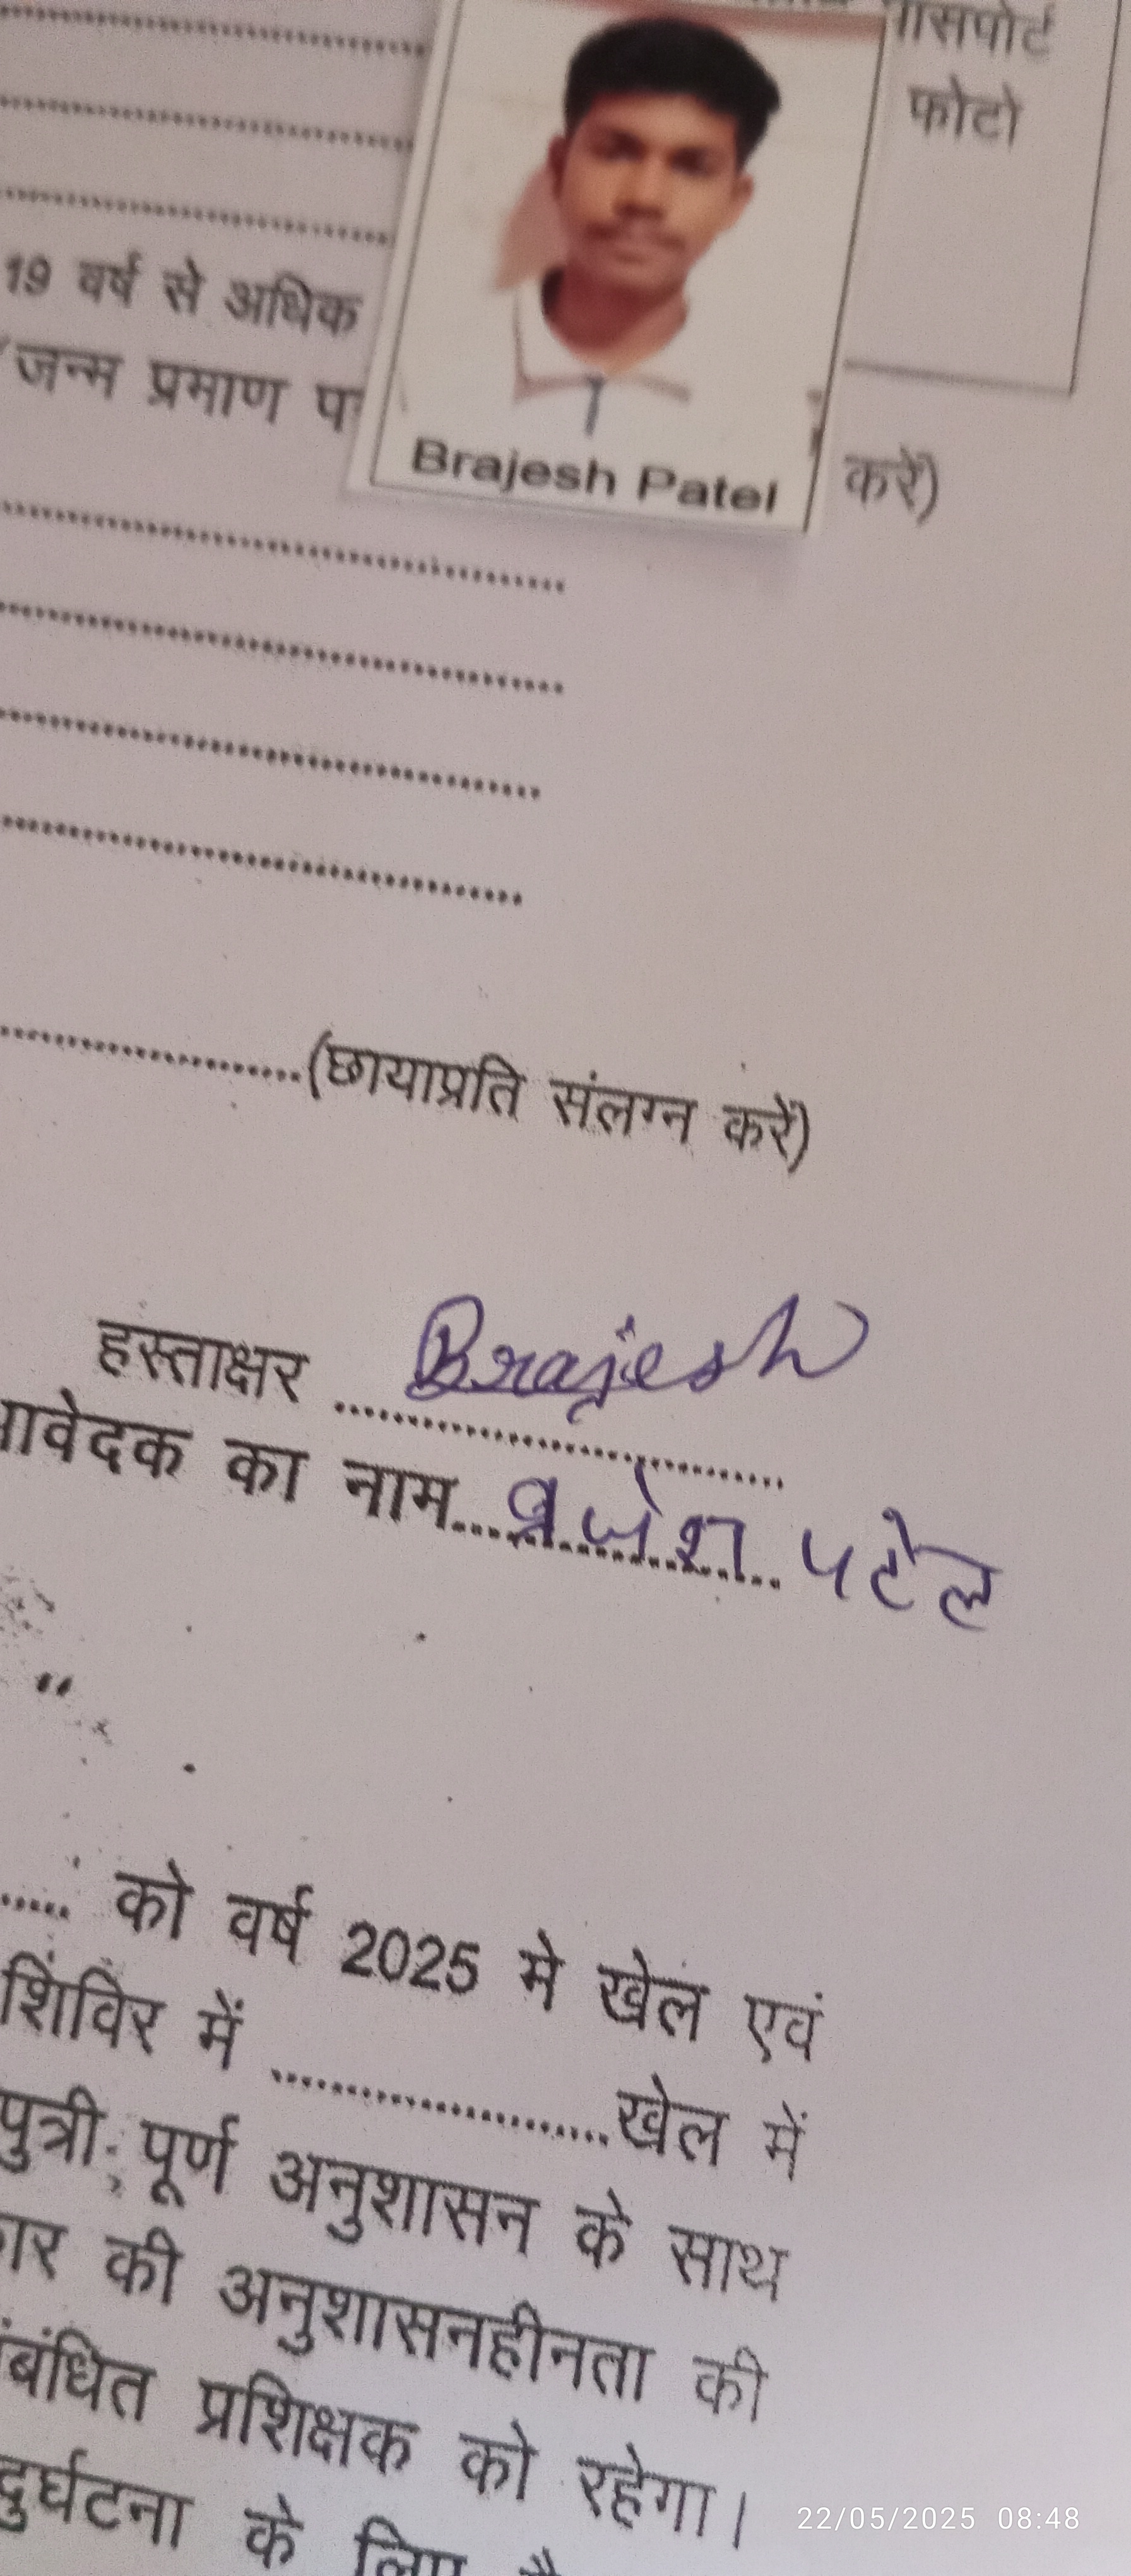 पासपोर्ट
फोटो
19 वर्ष से अधिक
जन्म प्रमाण
करें)
Brajesh Patel
(छायाप्रति संलग्न करें)
हस्ताक्षर Brajesh
आवेदक का नाम ब्रजेश पटेल
को वर्ष 2025 मे खेल एवं
शिविर में ....................खेल में
पुत्री पूर्ण अनुशासन के साथ
की अनुशासनहीनता की
संबंधित प्रशिक्षक को रहेगा।
दुर्घटना के लिए
22/05/2025 08:48